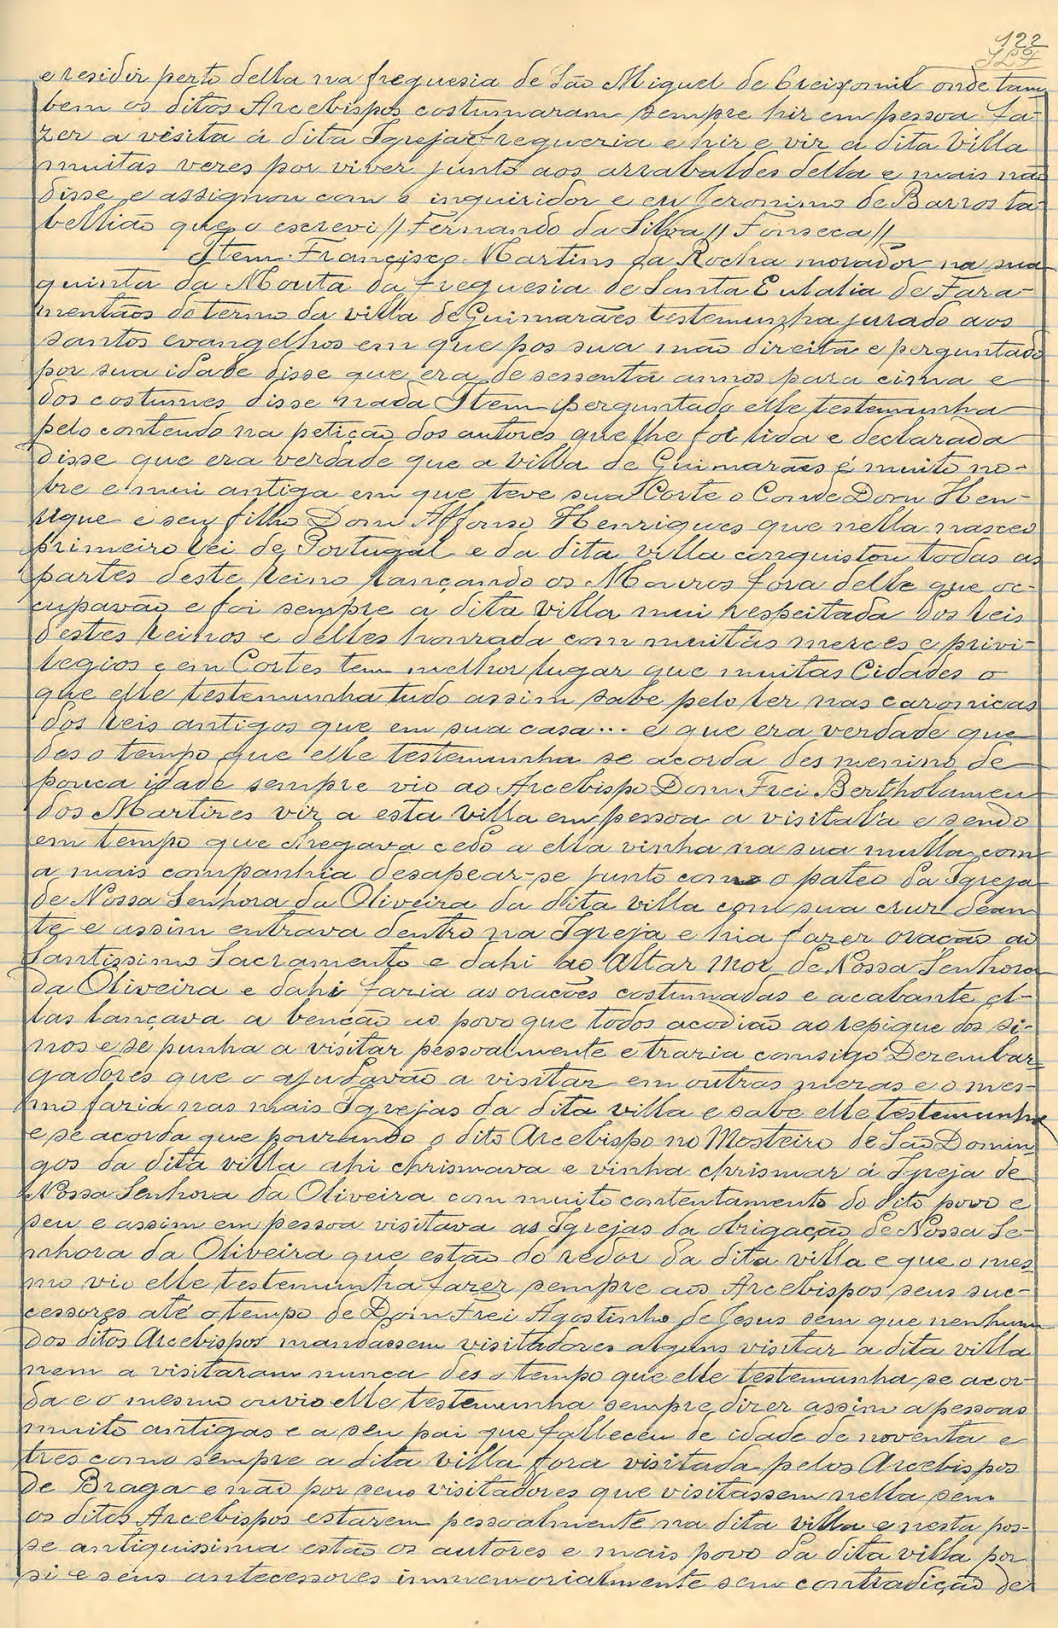 122
e residir perto della na freguesia de São Miguel de Creixomil onde tam
bem os ditos Arcebispos costumaram sempre hir em pessoa fa-
zer a visita á dita Igreja e freguezia e hir e vir á dita Villa
muitas vezes por viver junto aos arrabaldes della e mais não
disse e assignou com o inquiridor e eu Jeronimo de Barros ta-
bellião que o escrevi // Fernando da Silva // Fonseca //
Item Francisco Martins da Rocha morador na sua
quinta da Mouta da freguesia de Santa Eulalia de Fara-
mentãos do termo da villa de Guimarães testemunha jurado aos
santos evangelhos em que pos sua mão direita e perguntado
por sua idade disse que era de sessenta annos para cima e
dos costumes disse nada Item perguntado elle testemunha
pelo contendo na petição dos autores que lhe foi lida e declarada
disse que era verdade que a villa de Guimarães é muito no-
bre e mui antiga em que teve sua Corte o Conde Dom Hen-
rique e seu filho Dom Affonso Henriques que nella nasceo
primeiro Rei de Portugal e da dita villa conquistou todas as
partes deste reino lançando os Mouros fora delle que oc-
cupavão e foi sempre a dita villa mui respeitada dos reis
destes reinos e delles honrada com muitas merces e privi-
legios e em Cortes tem melhor lugar que muitas Cidades o
que elle testemunha tudo assim sabe pelo ler nas caronicas
dos reis antigos que em sua casa... e que era verdade que
des o tempo que elle testemunha se acorda des menino de
pouca idade sempre vio ao Arcebispo Dom Frei Bertholameu
dos Martires vir a esta villa em pessoa a visitala e sendo
em tempo que chegava cedo a ella vinha na sua mulla com
a mais companhia desapear-se junto com o pateo da Igreja
de Nossa Senhora da Oliveira da dita villa com sua cruz dean
te e assim entrava dentro na Igreja e hia fazer oração ao
Santissimo Sacramento e dahi ao Altar Mor de Nossa Senhora
da Oliveira e dahi fazia as orações costumadas e acabante el-
las lançava a benção ao povo que todos acodião ao repique dos si-
nos e se punha a visitar pessoalmente e trazia comsigo Dezembar-
gadores que o ajudavão a visitar em outras mezas e o mes-
mo fazia nas mais Igrejas da dita villa e sabe elle testemunha
e se acorda que pouzando o dito Arcebispo no Mosteiro de São Domin
gos da dita villa ahi chrismava e vinha chrismar á Igreja de
Nossa Senhora da Oliveira com muito contentamento do dito povo e
seu e assim em pessoa visitava as Igrejas da obrigação de Nossa Se-
nhora da Oliveira que estão do redor da dita villa e que o mes
mo vio elle testemunha fazer sempre aos Arcebispos seus suc-
cessores até o tempo de Dom Frei Agostinho de Jesus sem que nenhum
dos ditos Arcebispos mandassem visitadores alguns visitar a dita villa
nem a visitaram nunca des o tempo que elle testemunha se acor-
da e o mesmo ouvio elle testemunha sempre dizer assim a pessoas
muito antigas e a seu pai que falleceu de idade de noventa e
tres como sempre a dita villa fora visitada pelos Arcebispos
de Braga e não por seus visitadores que visitassem nella sem
os ditos Arcebispos estarem pessoalmente na dita villa e nesta pos-
se antiquissima estão os autores e mais povo da dita villa por
si e seus antecessores immemorialmente sem contradição de